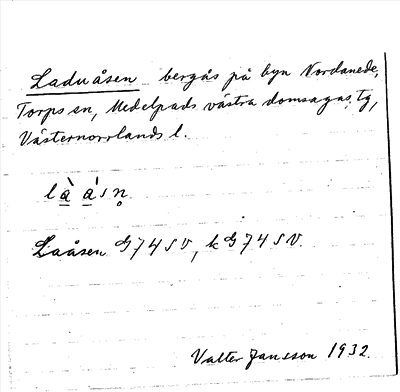 Laduåsen bergås på byn Nordanede,
Torps sn, Medelpads västra domsagas tg,
Västernorrlands l.
Laåsen G74SV, kG74SV.
Valter Jansson 1932